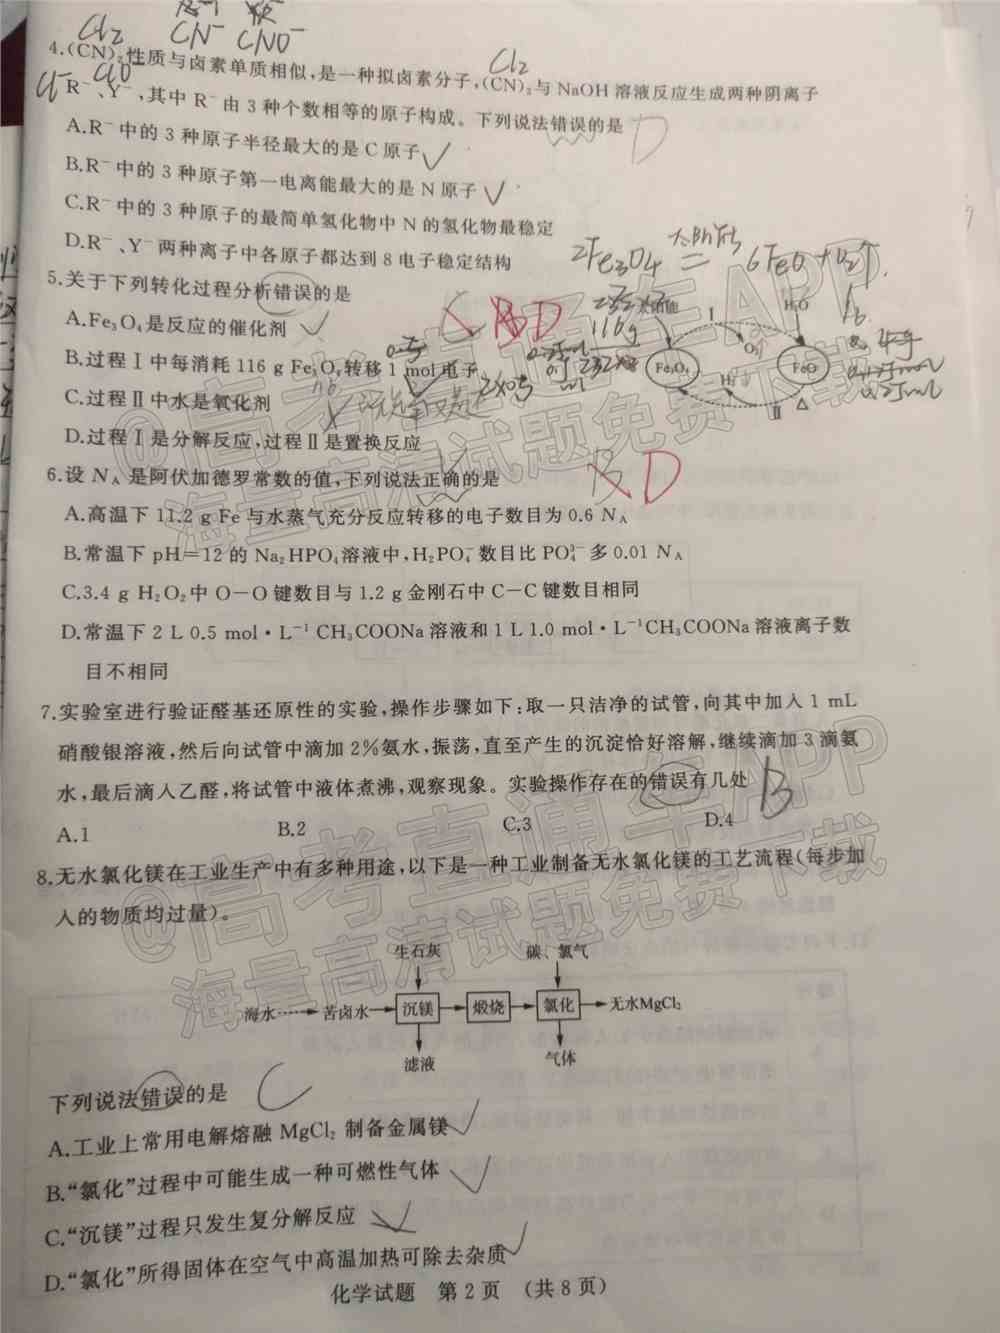 Cl₂
CN⁻ CNO⁻
4.(CN)₂性质与卤素单质相似,是一种拟卤素分子,(CN)₂与NaOH溶液反应生成两种阴离子
Cl₂
Cl⁻ ClO⁻
R⁻、Y⁻,其中R⁻由3种个数相等的原子构成。下列说法错误的是
D
A.R⁻中的3种原子半径最大的是C原子
B.R⁻中的3种原子第一电离能最大的是N原子
C.R⁻中的3种原子的最简单氢化物中N的氢化物最稳定
D.R⁻、Y⁻两种离子中各原子都达到8电子稳定结构
2Fe₃O₄ = 6FeO + O₂↑
5.关于下列转化过程分析错误的是
BD
A.Fe₃O₄是反应的催化剂
B.过程Ⅰ中每消耗116 g Fe₃O₄转移1 mol电子
C.过程Ⅱ中水是氧化剂
D.过程Ⅰ是分解反应,过程Ⅱ是置换反应
太阳能 Ⅰ H₂O
116g
O₂
Fe₃O₄ FeO
H₂
Ⅱ △
6.设 N_A 是阿伏加德罗常数的值,下列说法正确的是
B D
A.高温下11.2 g Fe与水蒸气充分反应转移的电子数目为0.6 N_A
B.常温下pH=12的Na₂HPO₄溶液中,H₂PO₄⁻数目比PO₄³⁻多0.01 N_A
C.3.4 g H₂O₂中O—O键数目与1.2 g金刚石中C—C键数目相同
D.常温下2 L 0.5 mol·L⁻¹ CH₃COONa溶液和1 L 1.0 mol·L⁻¹CH₃COONa溶液离子数
目不相同
7.实验室进行验证醛基还原性的实验,操作步骤如下:取一只洁净的试管,向其中加入1 mL
硝酸银溶液,然后向试管中滴加2%氨水,振荡,直至产生的沉淀恰好溶解,继续滴加3滴氨
水,最后滴入乙醛,将试管中液体煮沸,观察现象。实验操作存在的错误有几处
B
A.1 B.2 C.3 D.4
8.无水氯化镁在工业生产中有多种用途,以下是一种工业制备无水氯化镁的工艺流程(每步加
入的物质均过量)。
生石灰 碳、氯气
海水 苦卤水 沉镁 煅烧 氯化 无水MgCl₂
滤液 气体
下列说法错误的是
C
A.工业上常用电解熔融MgCl₂制备金属镁
B.“氯化”过程中可能生成一种可燃性气体
C.“沉镁”过程只发生复分解反应
D.“氯化”所得固体在空气中高温加热可除去杂质
化学试题 第2页 (共8页)
@高考直通车APP
海量高清试题免费下载
@高考直通车APP
海量高清试题免费下载